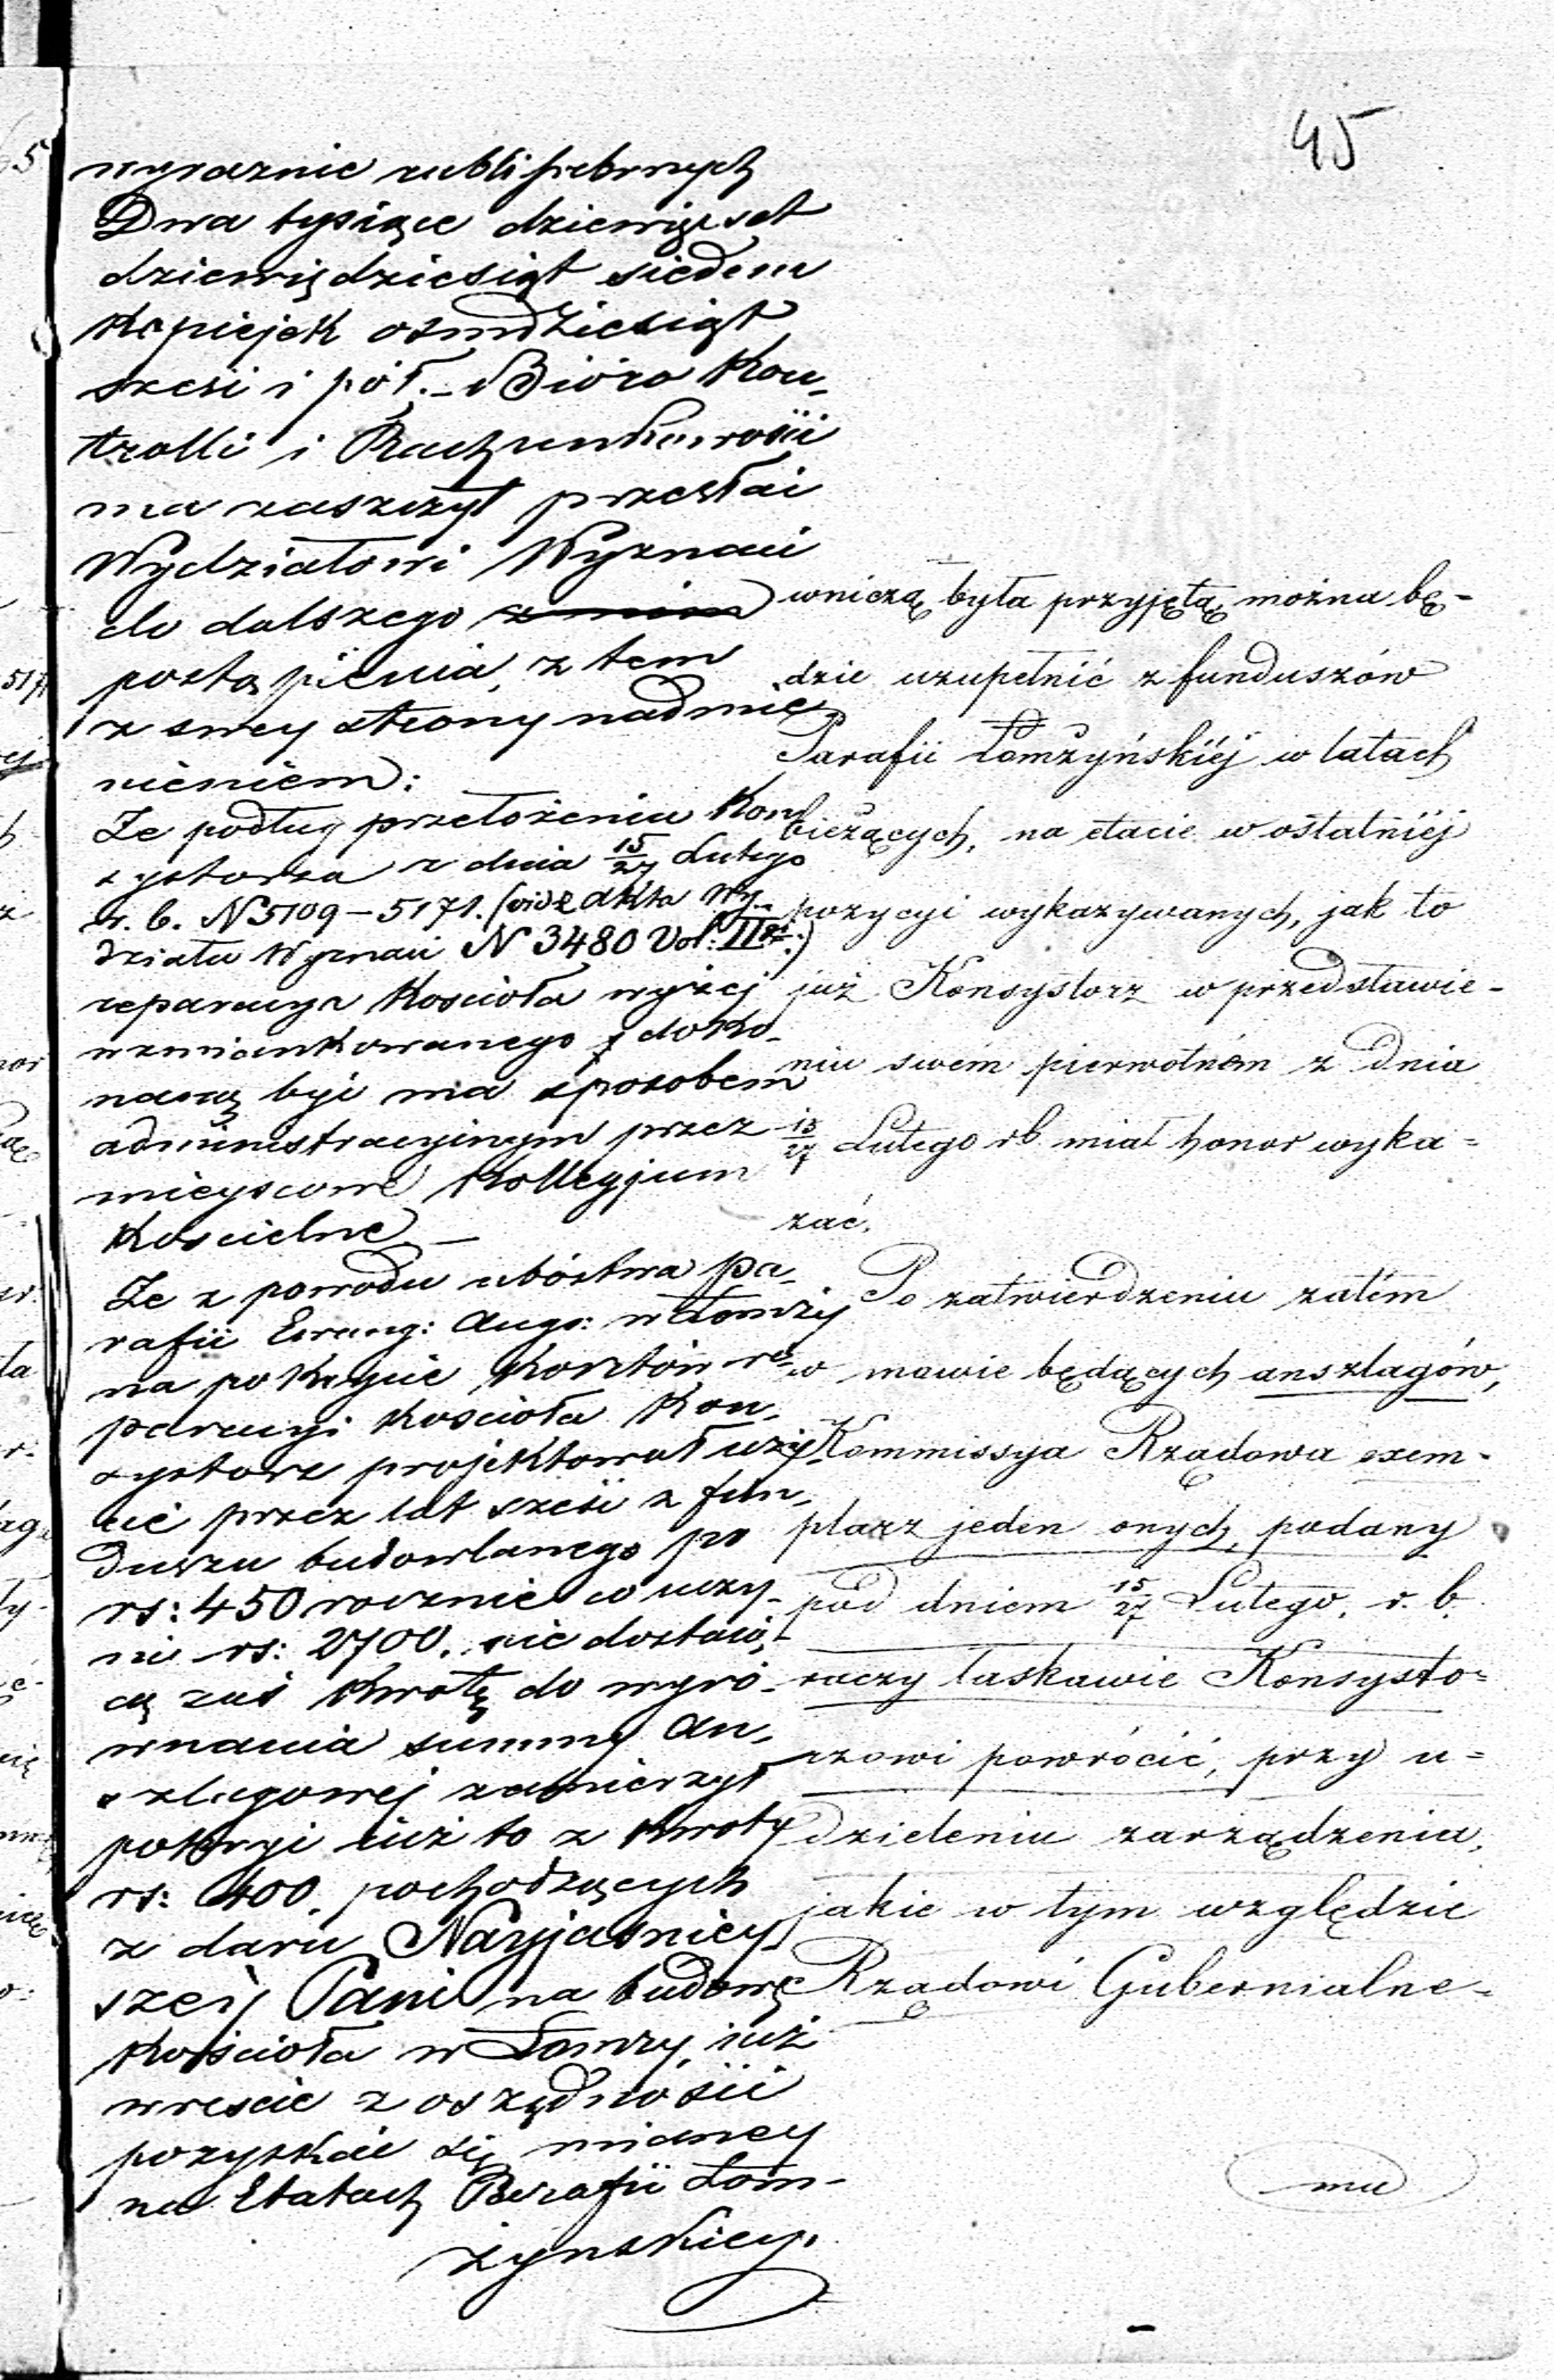 45
wyraznie rubli srebrnych
Dwa tysiące dziewięset
dziewiędziesiąt siedem
Kopiejek osmdziesiąt
sześć i pół. – Bióro Kon-
trolli i Rachunkowości
ma zaszczyt przesłać
Wydziałowi Wyznań
do dalszego
postąpienia, z tem
z swey strony nadmie-
nieniem:
Że podług przełożenia Kon-
systorza z dnia 15/27 Lutego
r. b. N 5109 – 5171. (vide akta Wy-
działu Wyznań N 3480 Vol: II)
reparacya Kościoła wyżej
wzmiankowanego doko-
naną być ma sposobem
administracyjnym przez
mieyscowe Kollegjum
Kościelne –
Że z powodu ubóstwa pa-
rafii Ewang: Augs: w Łomży
na pokrycie Kosztów re-
paracyi Kościoła Kon-
systorz projektował uży-
cie przez lat sześć z fun-
duszu budowlanego po
rs: 450 rocznie co uczy-
ni rs: 2700. nie dostają-
cą zaś kwotę do wyró-
wnania summy an-
szlagowej zamierzył
pokryć iuż to z Kwoty
rs: 400. pochodzących
z daru Nayjaśniey-
szey Pani na budowę
Kościoła w Łomży, iuż
wreście z oszczędności
pozyskać się mianey
na Etatach Parafii Łom-
żyńskiey.
wniczą była przyjętą, można bę-
dzie uzupełnić z funduszów
Parafii Łomżyńskiéj w latach
bieżących, na etacie w ostatniéj
pozycyi wykazywanych, jak to
już Konsystorz w przedstawie-
niu swém pierwotném z dnia
15/27 Lutego rb. miał honor wyka-
zać.
Po zatwierdzeniu zatém
w mowie będących anszlagów,
Kommissya Rządowa exem-
plarz jeden onych, podany
pod dniem 15/27 Lutego, r. b.
raczy łaskawie Konsysto-
rzowi powrócić, przy u-
dzieleniu zarządzenia,
jakie w tym względzie
Rządowi Gubernialne-
mu